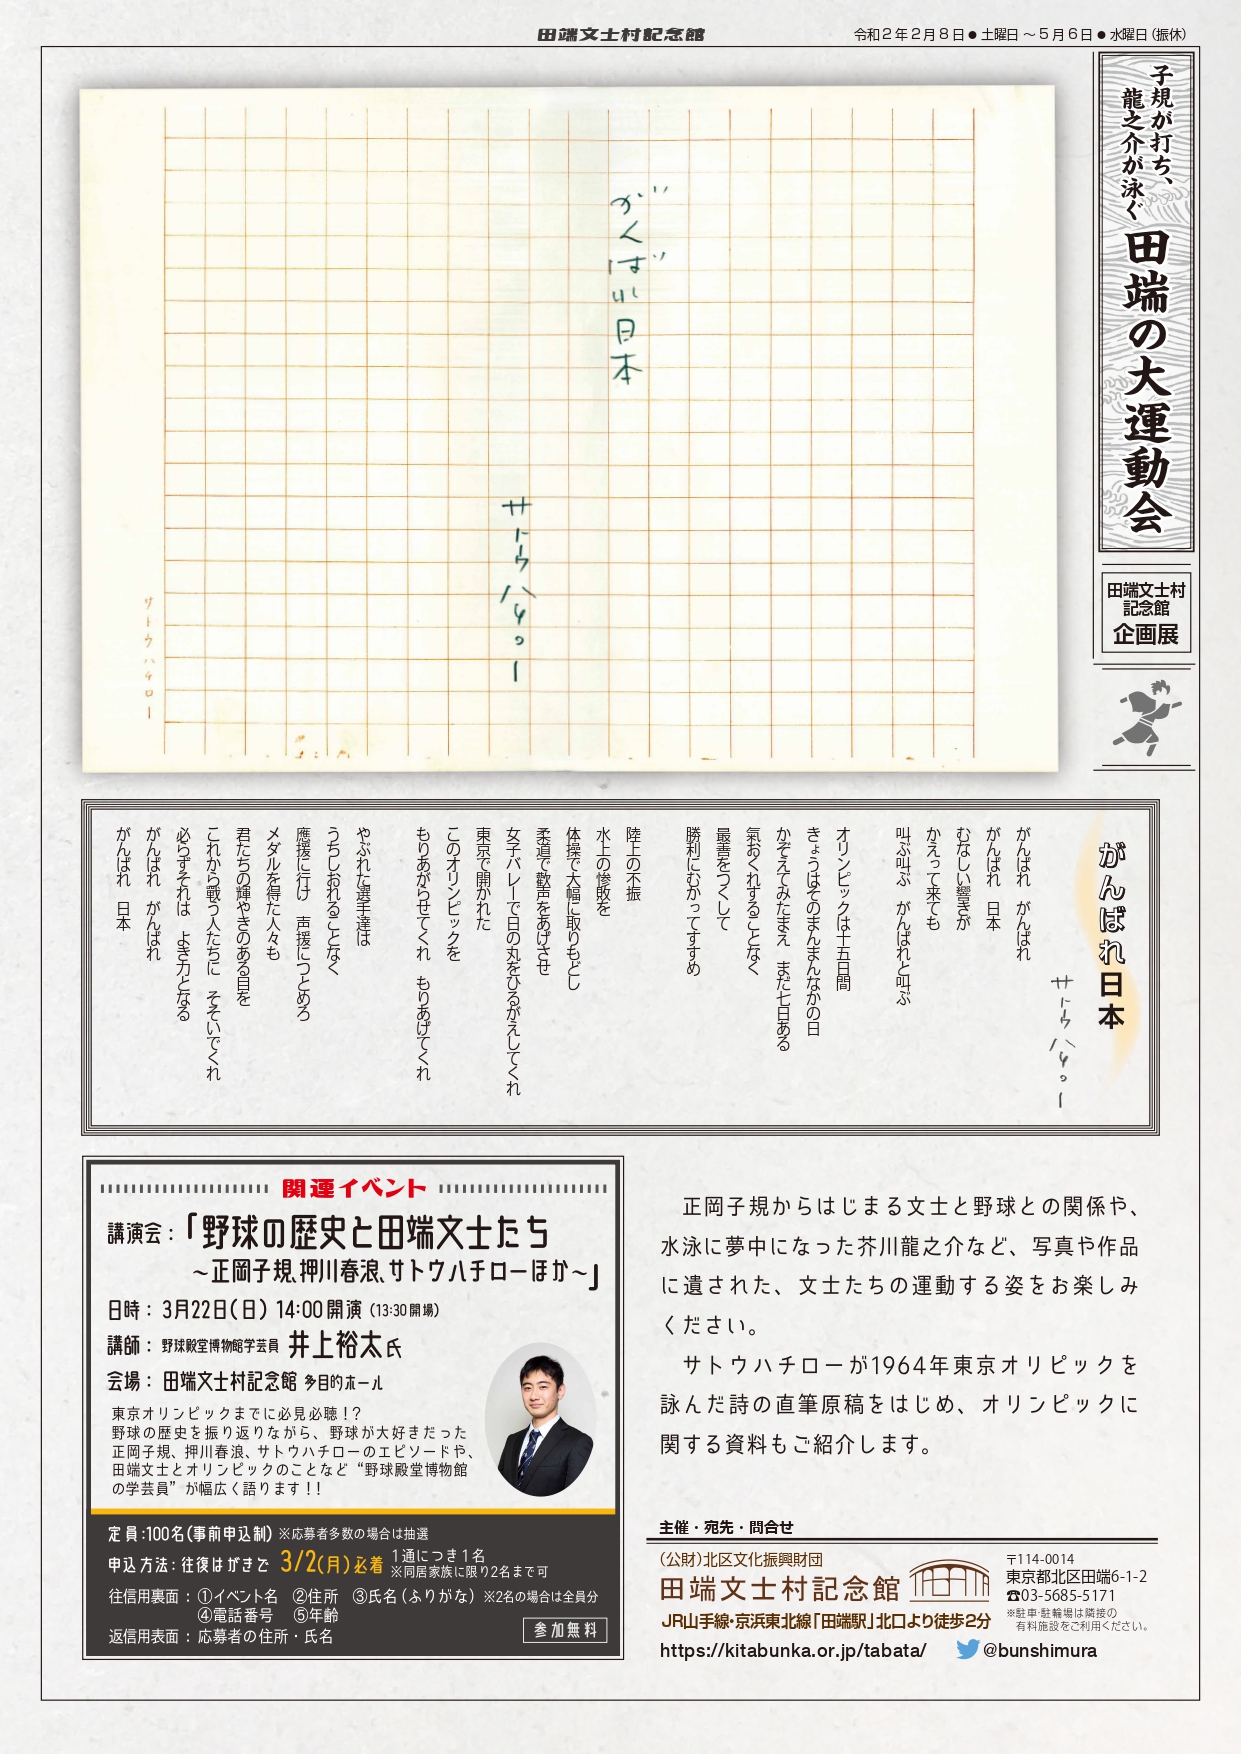 田端文士村記念館
令和2年2月8日●土曜日～5月6日●水曜日（振休）
子規が打ち、
龍之介が泳ぐ
田端の大運動会
田端文士村
記念館
企画展
がんばれ日本
サトウハチロー
サトウハチロー
がんばれ日本
サトウハチロー
がんばれ　がんばれ
がんばれ　日本
むなしい響きが
かえって来ても
叫ぶ叫ぶ　がんばれと叫ぶ
オリンピックは十五日間
きょうはそのまんまんなかの日
かぞえてみたまえ　まだ七日ある
氣おくれすることなく
最善をつくして
勝利にむかってすすめ
陸上の不振
水上の惨敗を
体操で大幅に取りもどし
柔道で歓声をあげさせ
女子バレーで日の丸をひるがえしてくれ
東京で開かれた
このオリンピックを
もりあがらせてくれ　もりあげてくれ
やぶれた選手達は
うちしおれることなく
應援に行け　声援につとめろ
メダルを得た人々も
君たちの輝やきのある目を
これから戦う人たちに　そそいでくれ
必らずそれは　よき力となる
がんばれ　がんばれ
がんばれ　日本
開運イベント
講演会：「野球の歴史と田端文士たち
～正岡子規、押川春浪、サトウハチローほか～」
日時：3月22日（日）14:00開演（13:30開場）
講師：野球殿堂博物館学芸員 井上裕太氏
会場：田端文士村記念館 多目的ホール
東京オリンピックまでに必見必聴！？
野球の歴史を振り返りながら、野球が大好きだった
正岡子規、押川春浪、サトウハチローのエピソードや、
田端文士とオリンピックのことなど“野球殿堂博物館
の学芸員”が幅広く語ります！！
定員:100名（事前申込制）※応募者多数の場合は抽選
申込方法：往復はがきで 3/2（月）必着 1通につき1名
※同居家族に限り2名まで可
往信用裏面：①イベント名　②住所　③氏名（ふりがな）※2名の場合は全員分
④電話番号　⑤年齢
返信用表面：応募者の住所・氏名
参加無料
正岡子規からはじまる文士と野球との関係や、
水泳に夢中になった芥川龍之介など、写真や作品
に遺された、文士たちの運動する姿をお楽しみ
ください。
サトウハチローが1964年東京オリピックを
詠んだ詩の直筆原稿をはじめ、オリンピックに
関する資料もご紹介します。
主催・宛先・問合せ
（公財）北区文化振興財団
田端文士村記念館
JR山手線・京浜東北線「田端駅」北口より徒歩2分
https://kitabunka.or.jp/tabata/
@bunshimura
〒114-0014
東京都北区田端6-1-2
☎03-5685-5171
※駐車・駐輪場は隣接の
有料施設をご利用ください。